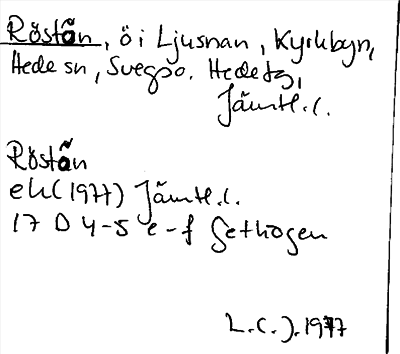 Röstån, ö i Ljusnan, Kyrkbyn,
Hede sn, Svegs o. Hede tg,
Jämtl. l.
Röstån
ek (1977) Jämtl. l.
17 D 4-5 e-f Sethögen
L.C.J. 1977